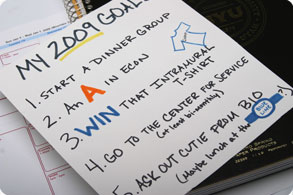 MY 2009 GOALS
1. START A DINNER GROUP
2. An A IN ECON
3. WIN THAT INTRAMURAL
T-SHIRT
4. GO TO THE CENTER FOR SERVICE
(at least bi-monthly)
5. ASK OUT CUTIE FROM BIO
(Maybe lunch at the